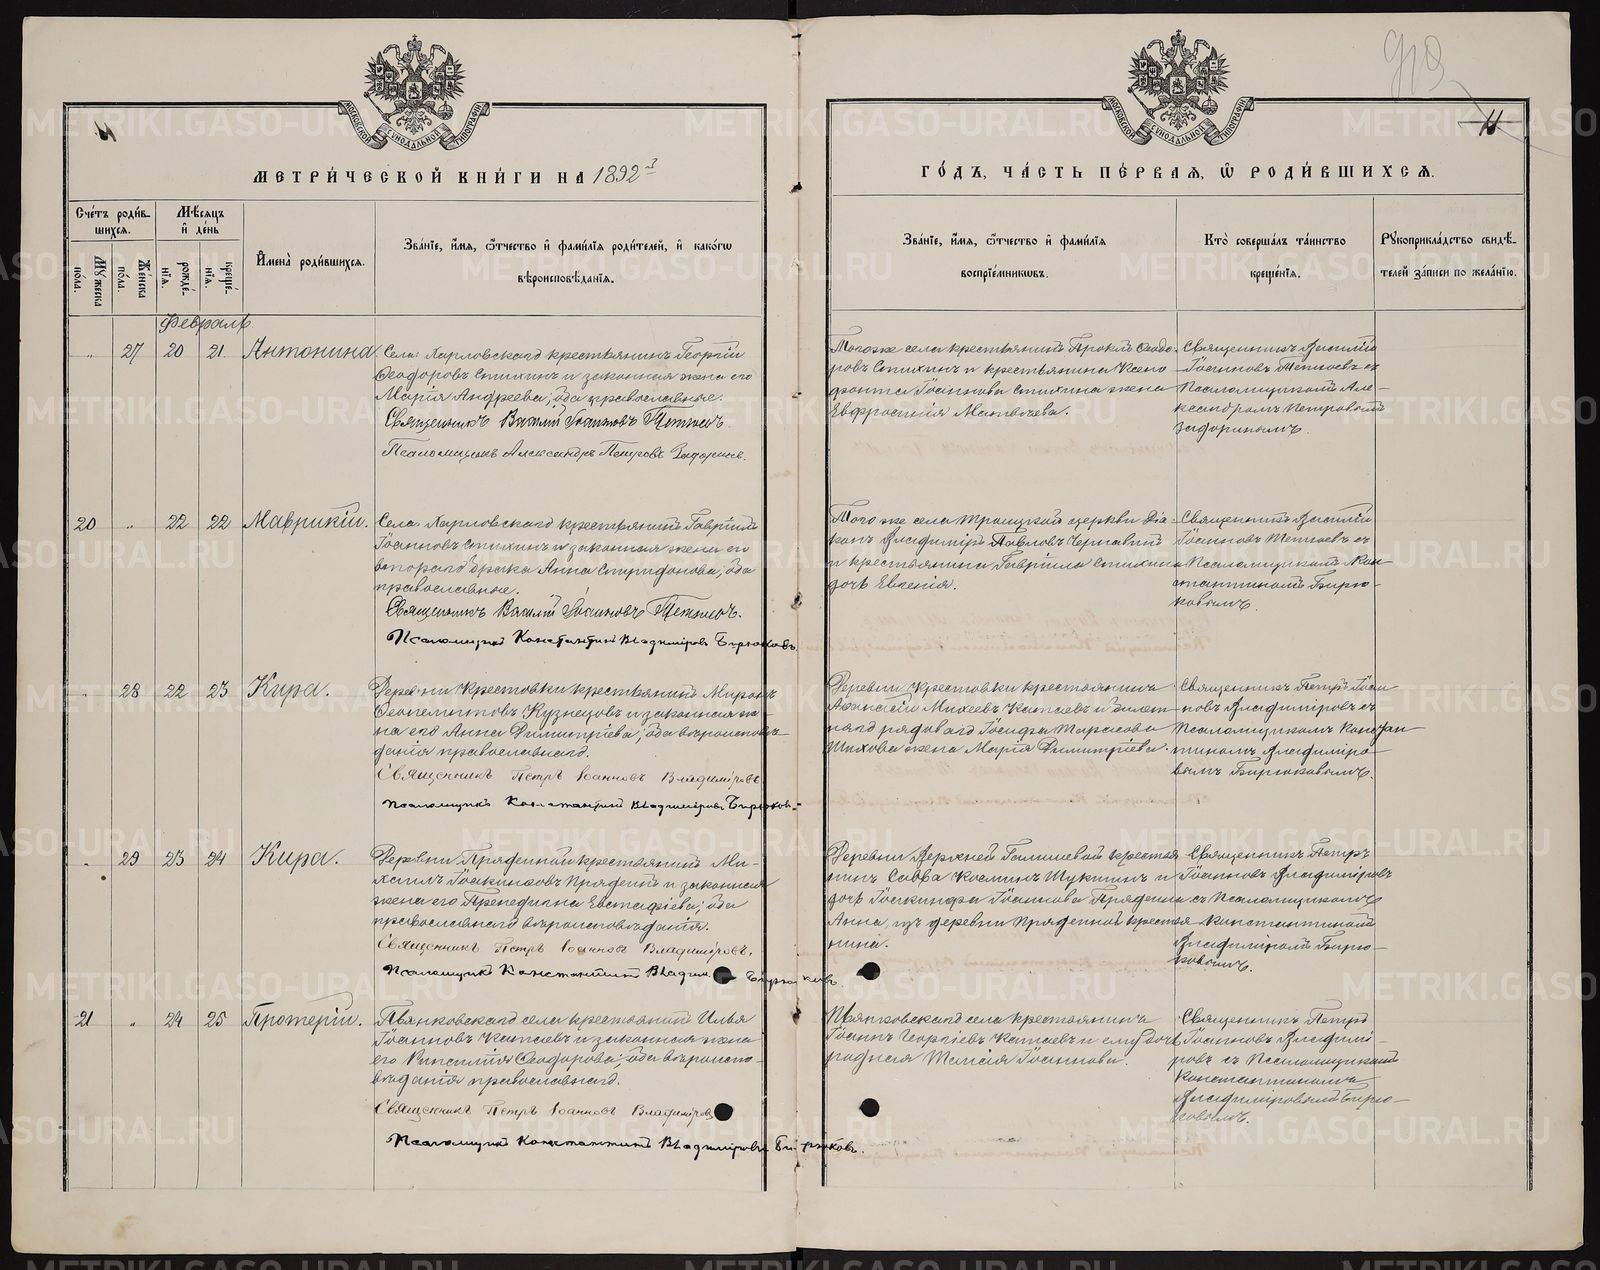 МЕТРИ́ЧЕСКОЙ КНИ́ГИ НА 1892й
Сче́тъ роди́в-
шихся.
Мѣсяцъ
и҆ де́нь
И҆мена̀ роди́вшихся.
Зва́нїе, и҆́мя, ѻ҆́тчество и҆ фами́лїя роди́телей, и҆ како́гѡ
вѣроисповѣ́данїя.
Мꙋ́жеска
по́ла.
Же́нска
по́ла.
рожде́-
нїя.
креще́-
нїя.
Февраль.
27 20 21 Антонина.
Села Харловскаго крестьянинъ Георгій
Ѳеодоровъ Стихинъ и законная жена его
Марія Андреева, оба православные.
Священникъ Василій Іоанновъ
Псаломщикъ Александръ Петровъ
20 " 22 22 Маврикій.
Села Харловскаго крестьянинъ Гавріилъ
Іоанновъ Стихинъ и законная жена его
втораго брака Анна Спиридонова, оба
православные.
Священникъ Василій Іоанновъ
Псаломщикъ Константинъ Владиміровъ Бирюковъ.
" 28 22 23 Кира.
Деревни Крестовки крестьянинъ Миронъ
Кузнецовъ и законная же-
на его Анна Димитріева, оба вѣроисповѣ-
данія православнаго.
Священникъ Петръ Іоанновъ Владиміровъ
Псаломщикъ Константинъ Владиміровъ Бирюковъ.
" 29 23 24 Кира.
Деревни Прядеиной крестьянинъ Ми-
хаилъ Іоакинѳовъ Прядеинъ и законная
жена его Препедигна Евстафіева, оба
православнаго вѣроисповѣданія.
Священникъ Петръ Іоанновъ Владиміровъ.
Псаломщикъ Константинъ Владим. Бирюковъ.
21 " 24 25 Протерій.
села крестьянинъ Илья
Іоанновъ Катаевъ и законная жена
его Ѳеодорова, оба вѣроиспо-
вѣданія православнаго.
Священникъ Петръ Іоанновъ Владиміровъ
Псаломщикъ Константинъ Владиміровъ Бирюковъ.
ГО́ДЪ, ЧА́СТЬ ПЕ́РВАЯ, Ѿ РОДИ́ВШИХСЯ.
11
Зва́нїе, и҆́мя, ѻ҆́тчество и҆ фами́лїя
воспрїе́мникѡвъ.
Кто̀ соверша́лъ та́инство
креще́нїя.
Рꙋкоприкла́дство свидѣ́-
телей за́писи по жела́нїю.
Тогоже села крестьянинъ Проклъ Ѳеодо-
ровъ Стихинъ и крестьянина Ксено-
фонта Іоаннова Стихина жена
Евфросинія Матвѣева.
Священникъ Василій
Іоанновъ съ
Псаломщикомъ Але-
ксандромъ Петровымъ
Того же села Троицкой церкви Діа-
конъ Владиміръ Павловъ Чернавинъ
и крестьянина Гавріила Стихина
дочь Евгенія.
Священникъ Василій
Іоанновъ съ
Псаломщикомъ Кон-
стантиномъ Бирю-
ковымъ.
Деревни Крестовки крестьянинъ
Аѳанасій Михеевъ Катаевъ и билет-
наго рядоваго Іосифа Тарасова
Шихова жена Марія Димитріева.
Священникъ Петръ Іоан-
новъ Владиміровъ съ
Псаломщикомъ Констан-
тиномъ Владиміро-
вымъ Бирюковымъ.
Деревни Верхней Голишевой крестья-
нинъ Савва Косминъ Шукшинъ и
дочь Іоакинѳа Іоаннова Прядеина
Анна, изъ деревни Прядеиной крестья-
нина.
Священникъ Петръ
Іоанновъ Владиміровъ
съ Псаломщикомъ
Константиномъ
Владиміровымъ Бирю-
ковымъ.
села крестьянинъ
Іоаннъ Георгіевъ Катаевъ и ему дочь
родная Таисія Іоаннова.
Священникъ Петръ
Іоанновъ Владимі-
ровъ съ Псаломщикомъ
Константиномъ
Владиміровымъ Бирю-
ковымъ.